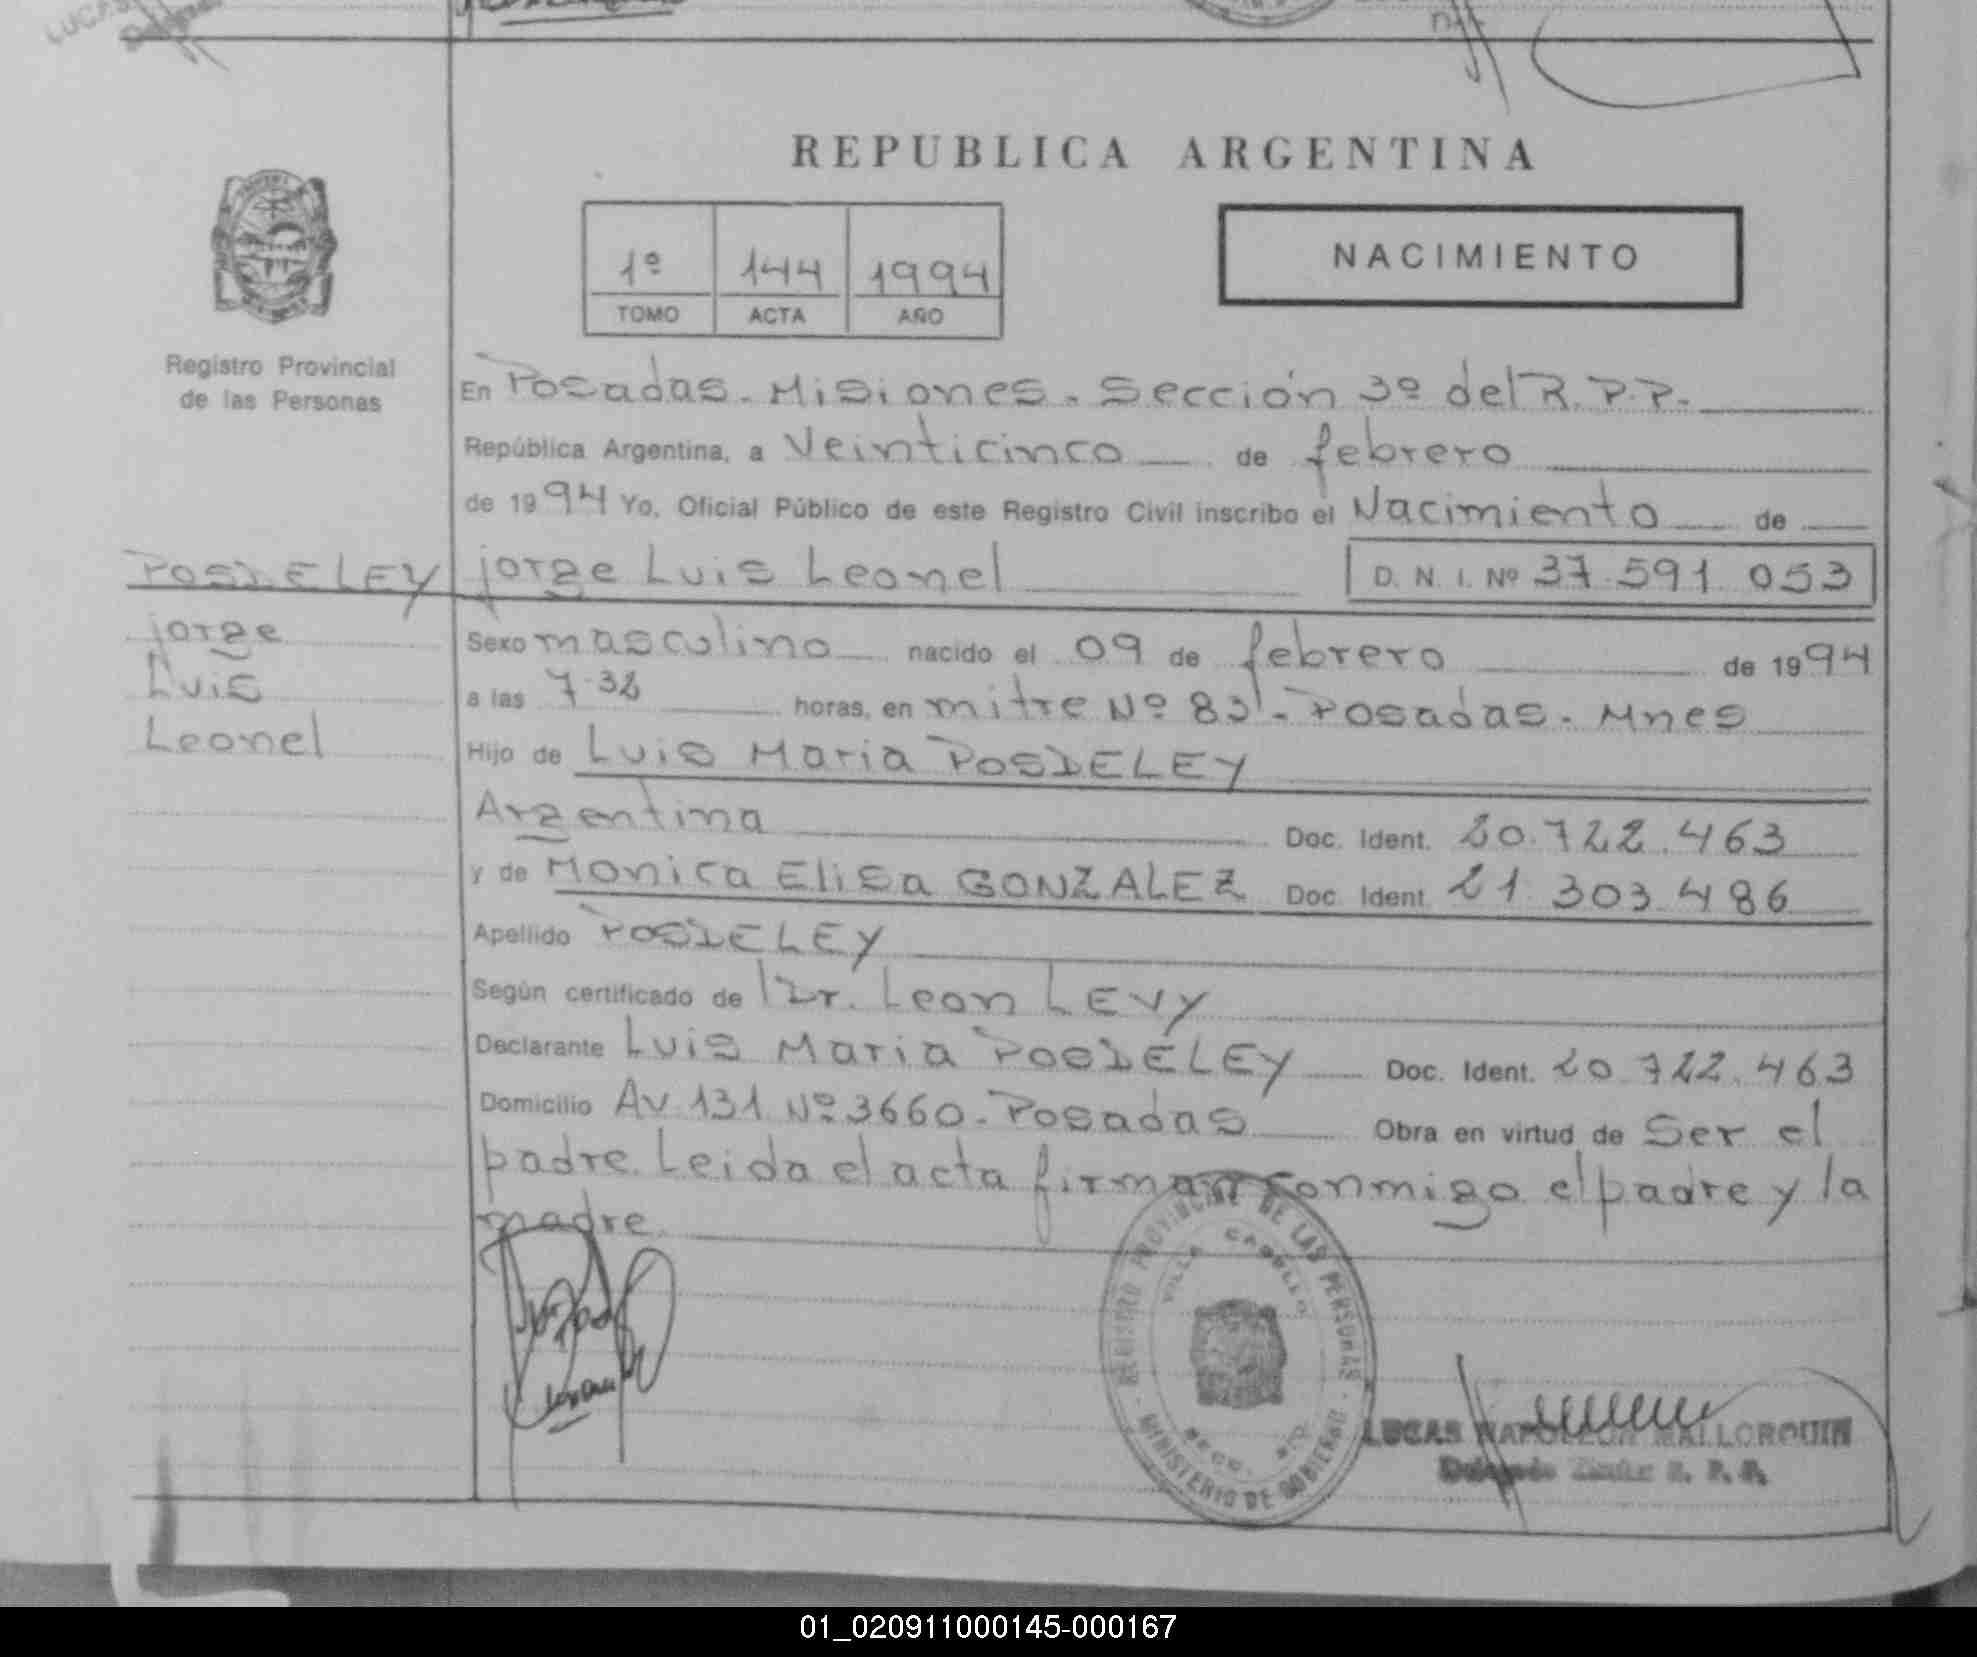 LUCAS
REPUBLICA ARGENTINA
1º 144 1994
TOMO ACTA AÑO
NACIMIENTO
Registro Provincial
de las Personas
En Posadas. Misiones. Sección 3º del R. P. P.
República Argentina, a Veinticinco de febrero
de 1994 Yo, Oficial Público de este Registro Civil inscribo el Nacimiento de
POSDELEY jorge Luis Leonel D. N. I. Nº 37.591.053
jorge
Luis
Leonel
Sexo masculino nacido el 09 de febrero de 1994
a las horas, en mitre Nº - Posadas. Mnes
Hijo de Luis Maria POSDELEY
Argentina Doc. Ident. 20.722.463
y de Monica Elisa GONZALEZ Doc. Ident. 21.303.486
Apellido POSDELEY
Según certificado de Dr. Leon LEVY
Declarante Luis Maria POSDELEY Doc. Ident. 20.722.463
Domicilio Av 131 Nº 3660. Posadas Obra en virtud de Ser el
padre. Leida el acta firman conmigo el padre y la
madre.
REGISTRO PROVINCIAL DE LAS PERSONAS
VILLA CABELLO
SECC. 3RO.
MINISTERIO DE GOBIERNO
LUCAS NAPOLEON MALLORQUIN
R. P. P.
01_020911000145-000167